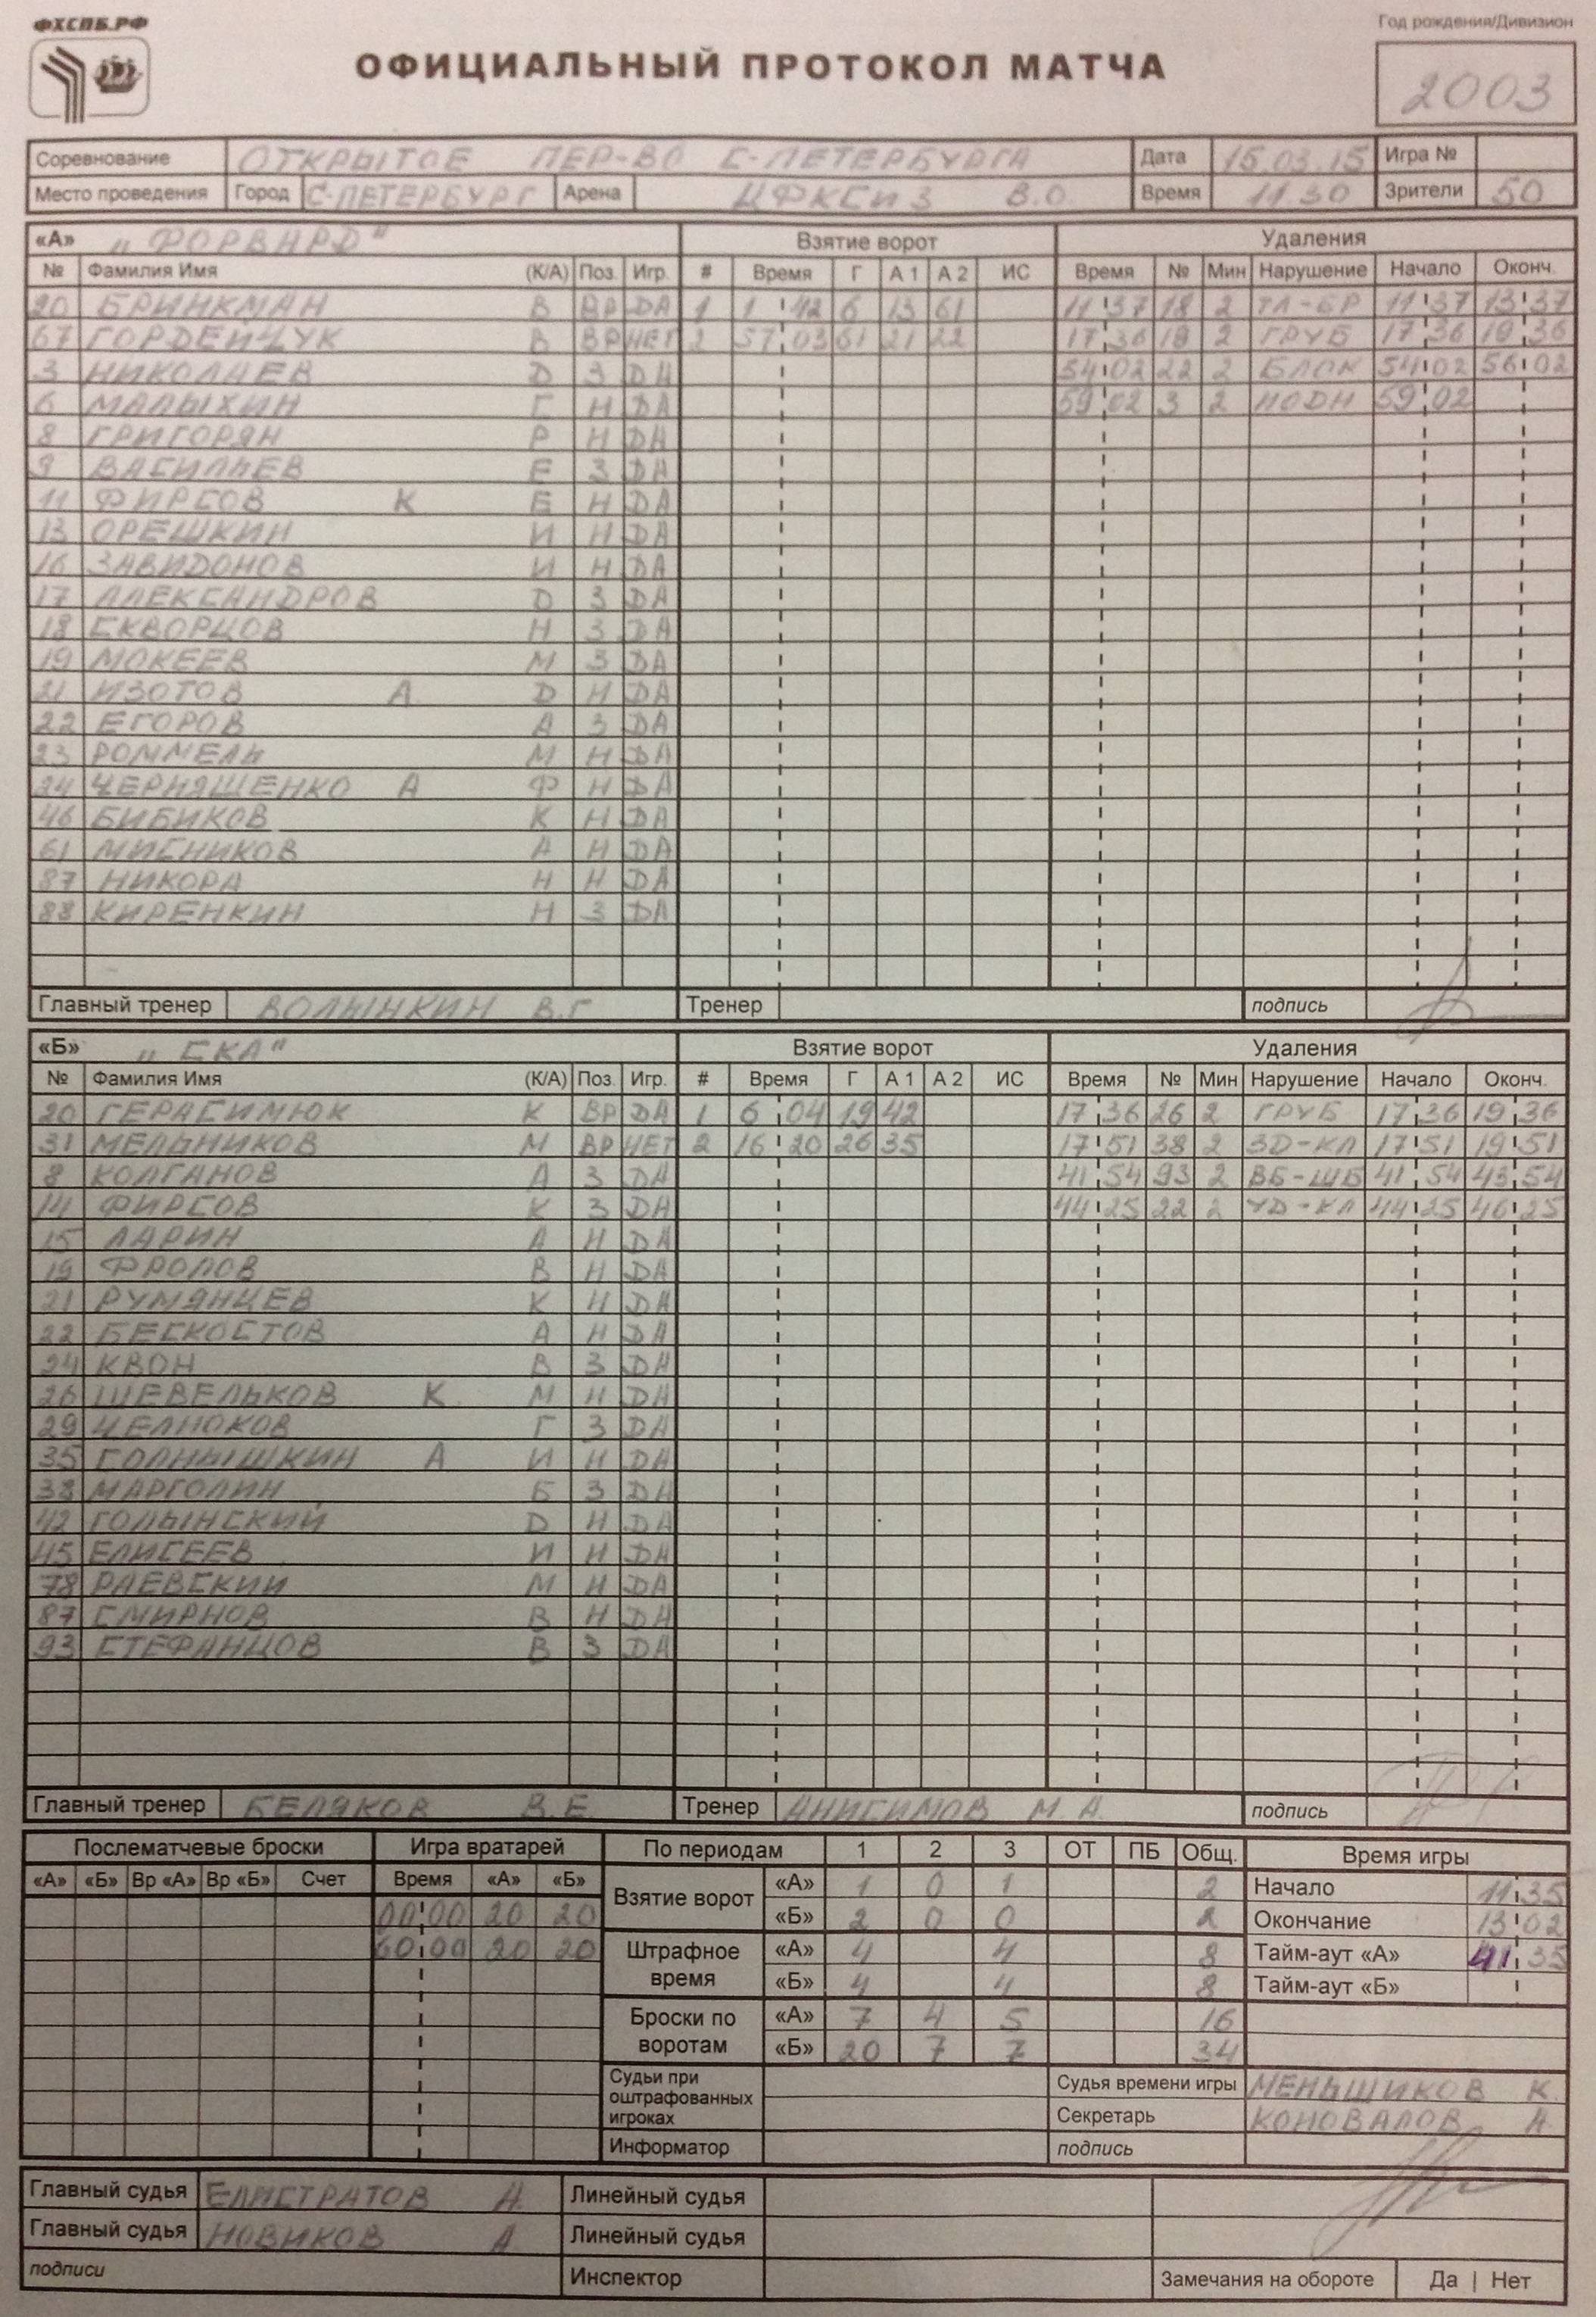 ФХСПБ.РФ
Год рождения/Дивизион
ОФИЦИАЛЬНЫЙ ПРОТОКОЛ МАТЧА
2003
Соревнование ОТКРЫТОЕ ПЕР-ВО С-ПЕТЕРБУРГА Дата 15.03.15 Игра №
Место проведения Город С-ПЕТЕРБУРГ Арена ЦФКСиЗ В.О. Время 11.30 Зрители 50
«А» „ФОРВАРД" Взятие ворот Удаления
№ Фамилия Имя (К/А) Поз. Игр. # Время Г А 1 А 2 ИС Время № Мин Нарушение Начало Оконч.
20 БРИНКМАН В ВР ДА 1 1 42 6 13 61 11 37 18 2 ТЛ-БР 11 37 13 37
67 ГОРДЕЙЧУК В ВР НЕТ 2 57 03 61 21 22 17 36 19 2 ГРУБ 17 36 19 36
3 НИКОЛАЕВ D З DА 54 02 22 2 БЛОК 54 02 56 02
6 МАЛЫХИН Г Н DА 59 02 3 2 ПОДН 59 02
8 ГРИГОРЯН Р Н DА
9 ВАСИЛЬЕВ Е З DА
11 ФИРСОВ К Е Н DА
13 ОРЕШКИН И Н DА
16 ЗАВИДОНОВ И Н DА
17 АЛЕКСАНДРОВ D З DА
18 СКВОРЦОВ Н З DА
19 МОКЕЕВ М З DА
21 ИЗОТОВ А D Н DА
22 ЕГОРОВ А З DА
23 РОММЕЛЬ М Н DА
24 ЧЕРНЯШЕНКО А Ф Н DА
46 БИБИКОВ К Н DА
61 МЯСНИКОВ А Н DА
87 НИКОРА Н Н DА
88 КИРЕНКИН Н З DА
Главный тренер ВОЛЫНКИН В.Г Тренер подпись
«Б» „СКА" Взятие ворот Удаления
№ Фамилия Имя (К/А) Поз. Игр. # Время Г А 1 А 2 ИС Время № Мин Нарушение Начало Оконч.
20 ГЕРАСИМЮК К ВР DА 1 6 04 19 42 17 36 26 2 ГРУБ 17 36 19 36
31 МЕЛЬНИКОВ М ВР НЕТ 2 16 20 26 35 17 51 38 2 ЗD-КЛ 17 51 19 51
8 КОЛГАНОВ А З DА 41 54 93 2 ВБ-ШБ 41 54 43 54
14 ФИРСОВ К З DА 44 25 22 2 УD-КЛ 44 25 46 25
15 ЛАРИН А Н DА
19 ФРОЛОВ В Н DА
21 РУМЯНЦЕВ К Н DА
22 БЕСКОСТОВ А Н DА
24 КВОН В З DА
26 ШЕВЕЛЬКОВ К М Н DА
29 ЧЕЛНОКОВ Г З DА
35 СОЛНЫШКИН А И Н DА
38 МАРГОЛИН Б З DА
42 ГОЛЫНСКИЙ D Н DА
45 ЕЛИСЕЕВ И Н DА
78 РАЕВСКИЙ М Н DА
87 СМИРНОВ В Н DА
93 СТЕФАНЦОВ В З DА
Главный тренер БЕЛЯКОВ В.Е. Тренер АНИСИМОВ М.А. подпись
Послематчевые броски Игра вратарей По периодам 1 2 3 ОТ ПБ Общ. Время игры
«А» «Б» Вр «А» Вр «Б» Счет Время «А» «Б»
Взятие ворот «А» 1 0 1 2 Начало 11 35
00 00 20 20 «Б» 2 0 0 2 Окончание 13 02
60 00 20 20 Штрафное время «А» 4 4 8 Тайм-аут «А» 41 35
«Б» 4 4 8 Тайм-аут «Б»
Броски по воротам «А» 7 4 5 16
«Б» 20 7 7 34
Судьи при оштрафованных игроках Судья времени игры МЕНЬШИКОВ К.
Секретарь КОНОВАЛОВ А.
Информатор подпись
Главный судья ЕЛИСТРАТОВ А. Линейный судья
Главный судья НОВИКОВ А Линейный судья
подписи Инспектор Замечания на обороте Да | Нет